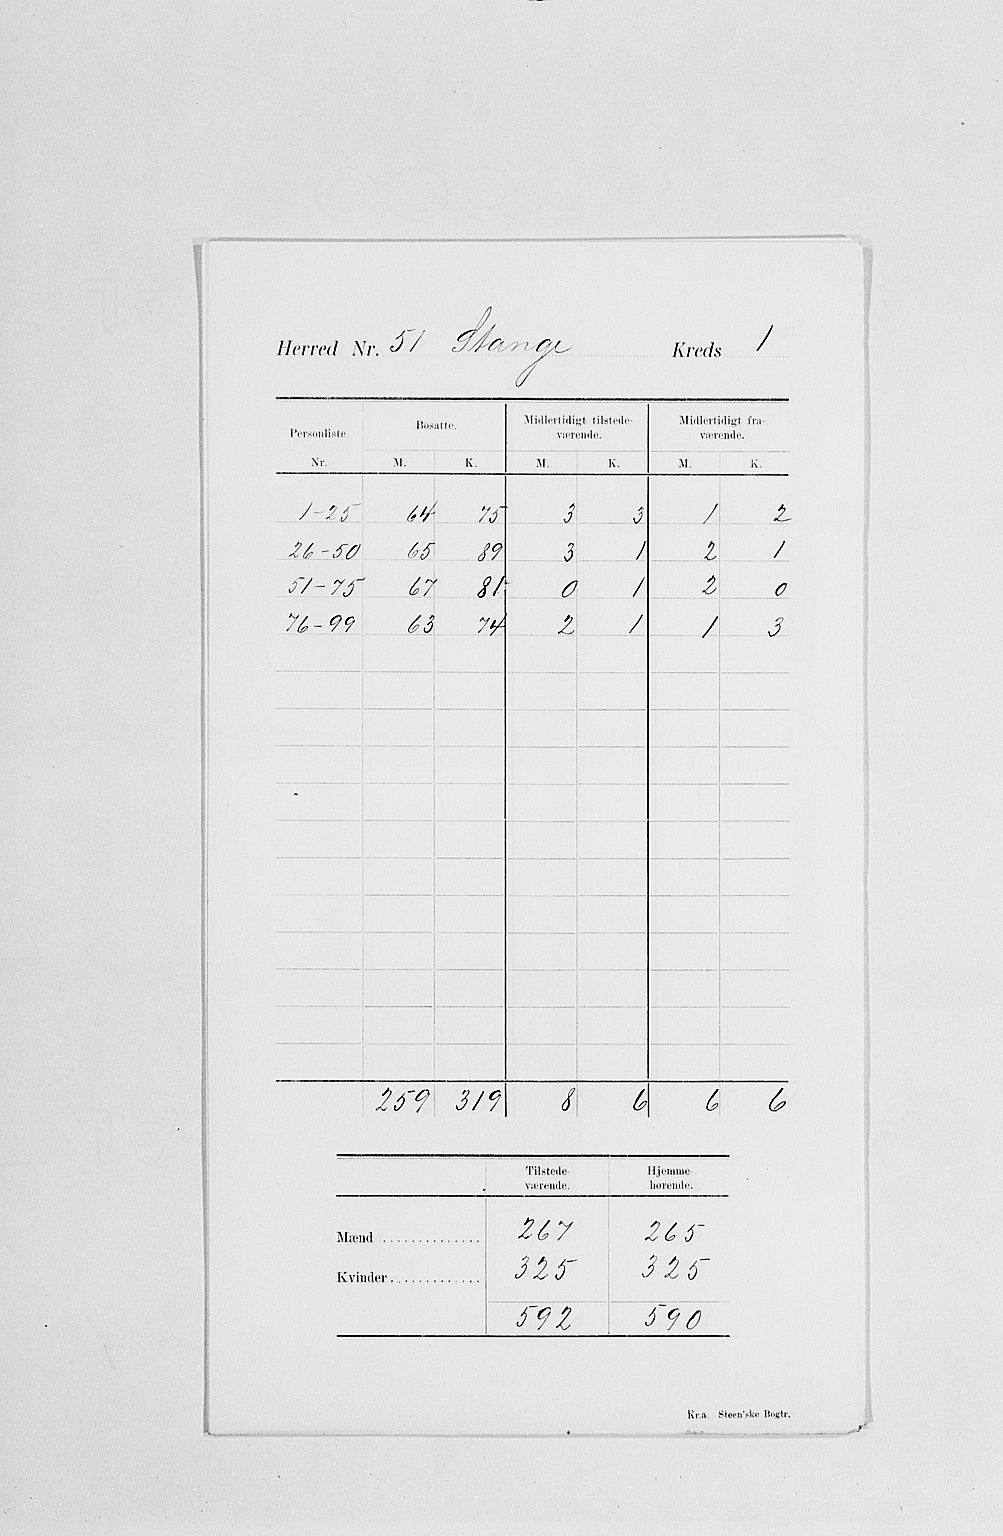 Herred Nr. 51 Stange Kreds 1
Personliste Bosatte. Midlertidigt tilstede- Midlertidigt fra-
værende. værende.
Nr. M. K. M. K. M. K.
1-25 64 75 3 3 1 2
26-50 65 89 3 1 2 1
51-75 67 81 0 1 2 0
76-99 63 74 2 1 1 3
259 319 8 6 6 6
Tilstede- Hjemme-
værende. hørende.
Mænd .............. 267 265
Kvinder ............. 325 325
592 590
Kr.a Steen'ske Bogtr.